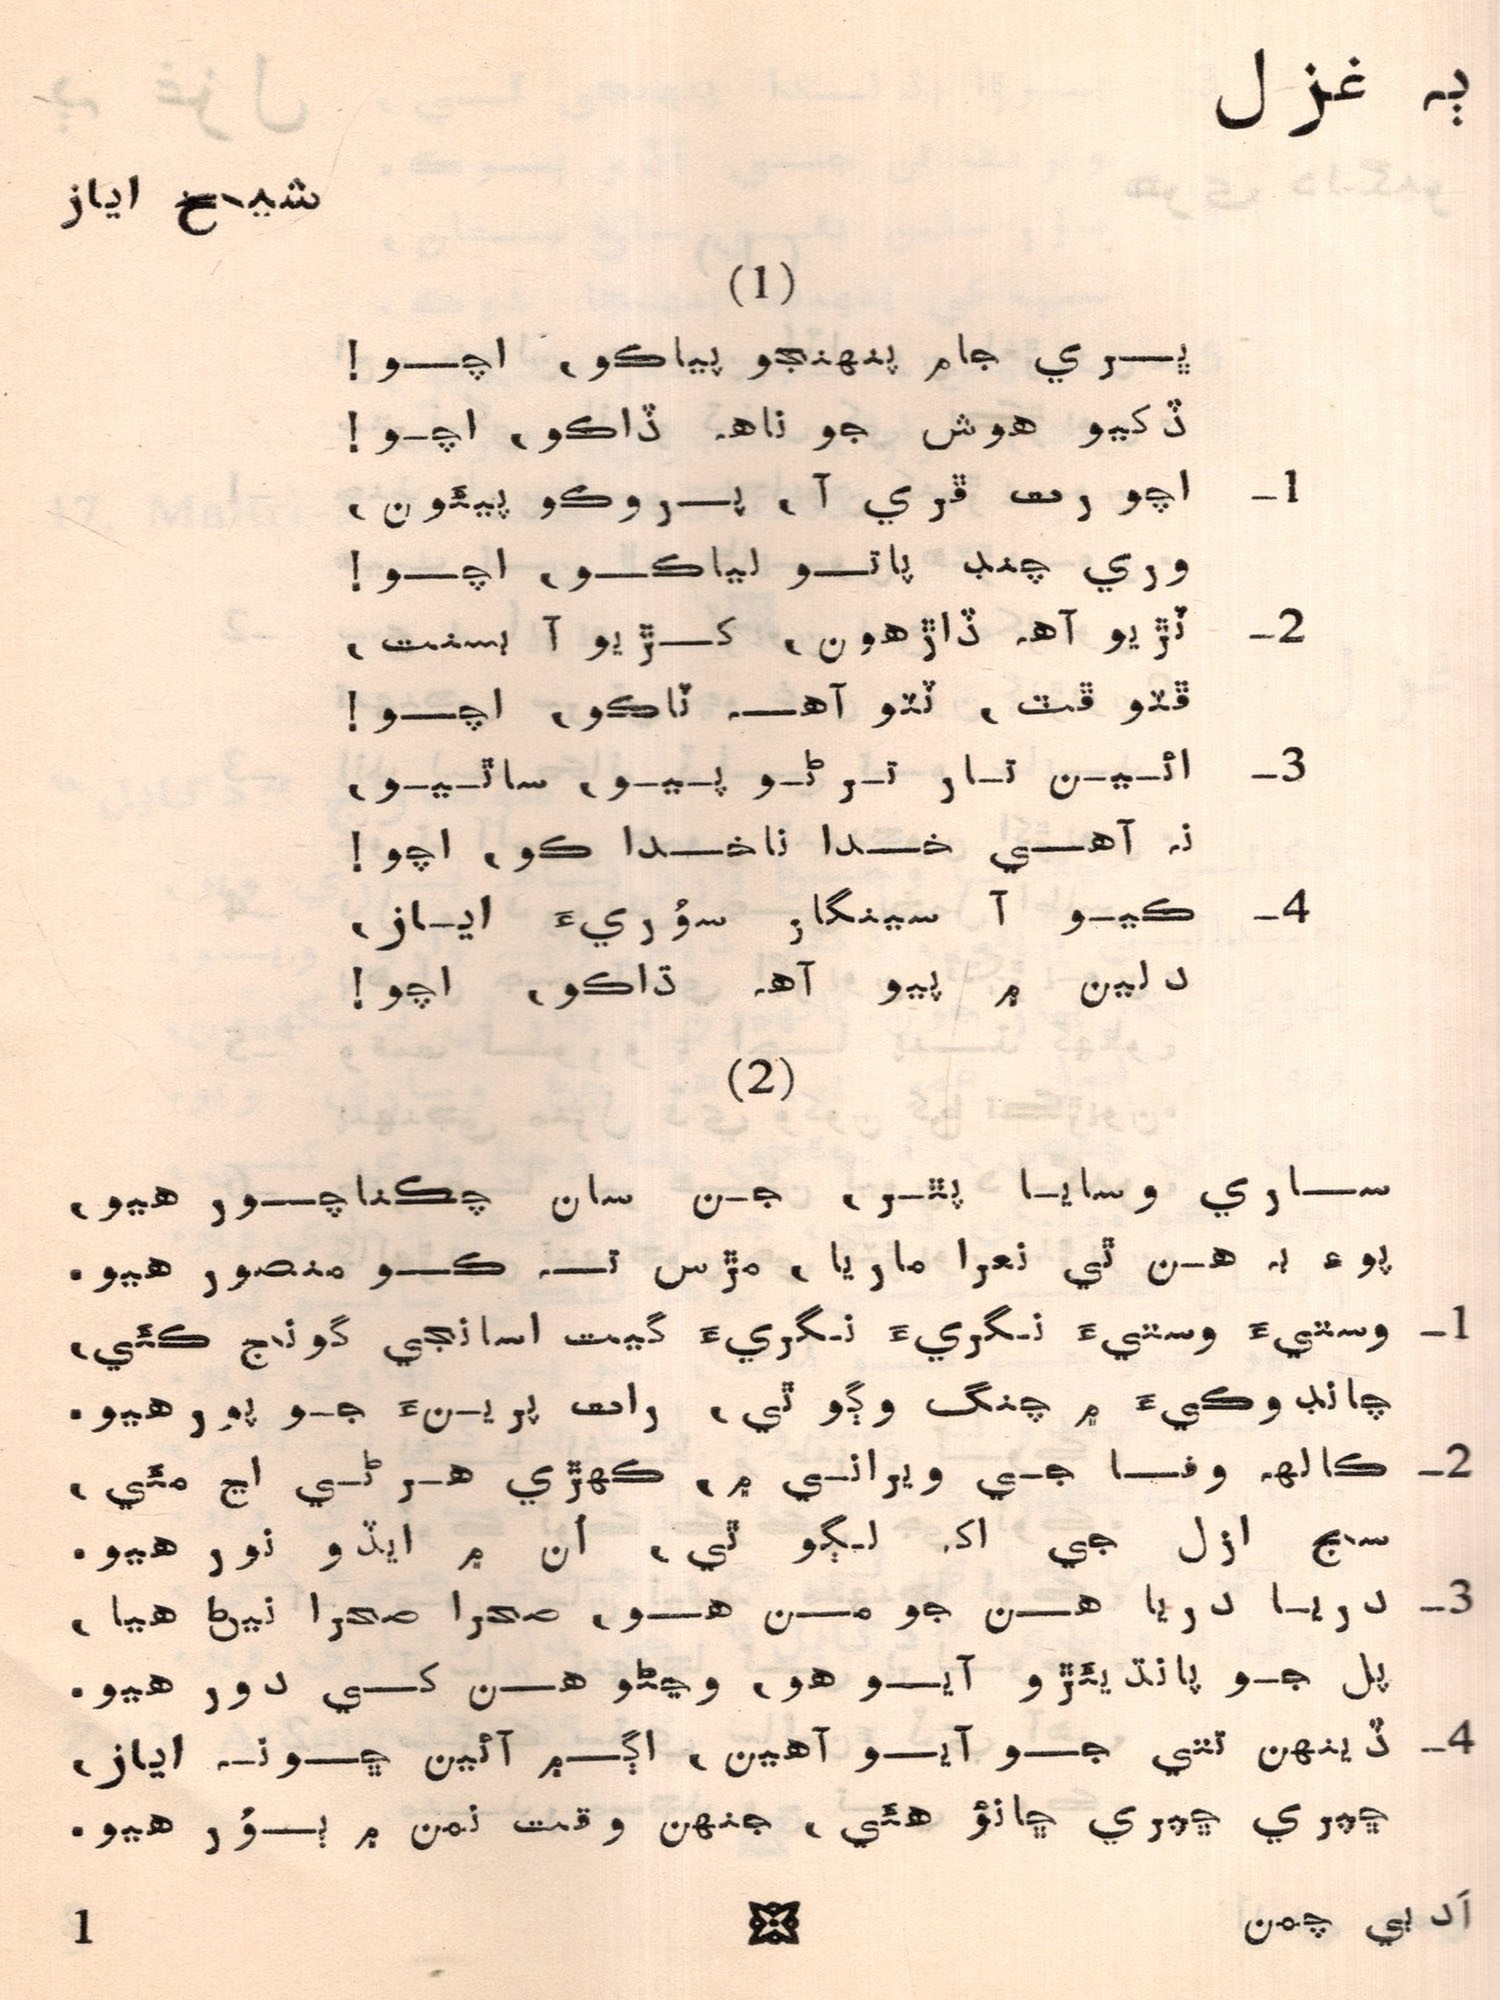 ٻہ غزل
شيخ اياز
(1)
ڀري جام پنهنجو پياڪو، اچو!
ڏکيو هوش جو ناهہ ڏاڪو، اچو!
1- اچو رت ڦري آ، پروڪو پيئون،
وري چنڊ پاتو لياڪو، اچو!
2- ٽڙيو آهہ ڏاڙهون، کڙيو آ بسنت،
ڦٽو ڦٽ، ٽٽو آهہ ٽاڪو، اچو!
3- ائين تار ترڻو پيو، ساٿيو،
نہ آهي خدا ناخدا ڪو، اچو!
4- ڪيو آ سينگار سؤريءَ اياز،
دلين ۾ پيو آهہ ڌاڪو، اچو!
(2)
ساري وسايا پٿر، جن سان چڪناچور هيو،
پوءِ بہ هن ٿي نعرا ماريا، مڙس تہ ڪو منصور هيو.
1- وستيءَ وستيءَ نگريءَ نگريءَ گيت اسانجي گونج ڪئي،
چانڊوڪيءَ ۾ چنگ وڳو ٿي، رات پرينءَ جو پور هيو.
2- ڪالهہ وفا جي ويراني ۾، ڪهڙي هرڻي اڃ مئي،
سج ازل جي اک لڳو ٿي، اُن ۾ ايڏو نور هيو.
3- دريا دريا هن جو من هو، صحرا صحرا نيڻ هيا،
پل جو پانڌيئڙو آيو هو، وڃڻو هن کي دور هيو.
4- ڏينهن تتي جو آيو آهين، اڳ ۾ آئين ڇونہ اياز،
ڇڊري ڇڊري ڇانؤ هئي، جنهن وقت نمن ۾ ٻؤر هيو.
اَدبي چمن
1